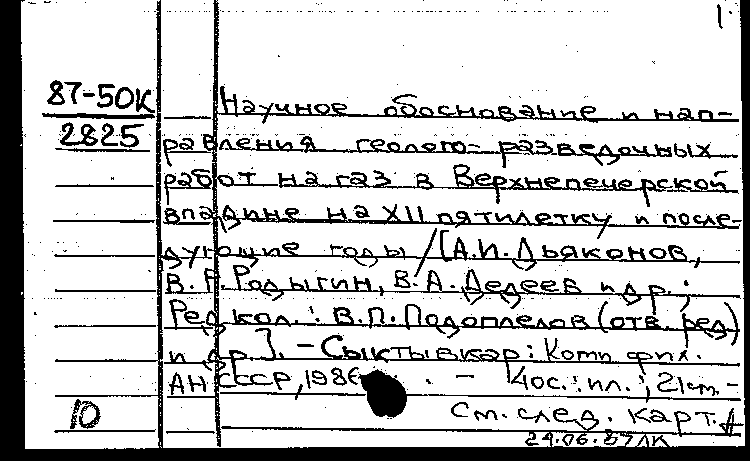 1.
87-50К
2825
Научное обоснование и нап-
равления геолого-разведочных
работ на газ в Верхнепечерской
впадине на XII пятилетку и после-
дующие годы / [А.И. Дьяконов,
В. Г. Родыгин, В.А. Дедеев и др.;
Редкол.: В.П. Подоплелов (отв. ред)
и др.]. - Сыктывкар: Коми фил.
АН СССР, 1986. - 40с.: ил.; 21см. -
10
См. след. карт.
24.06.87ЛК